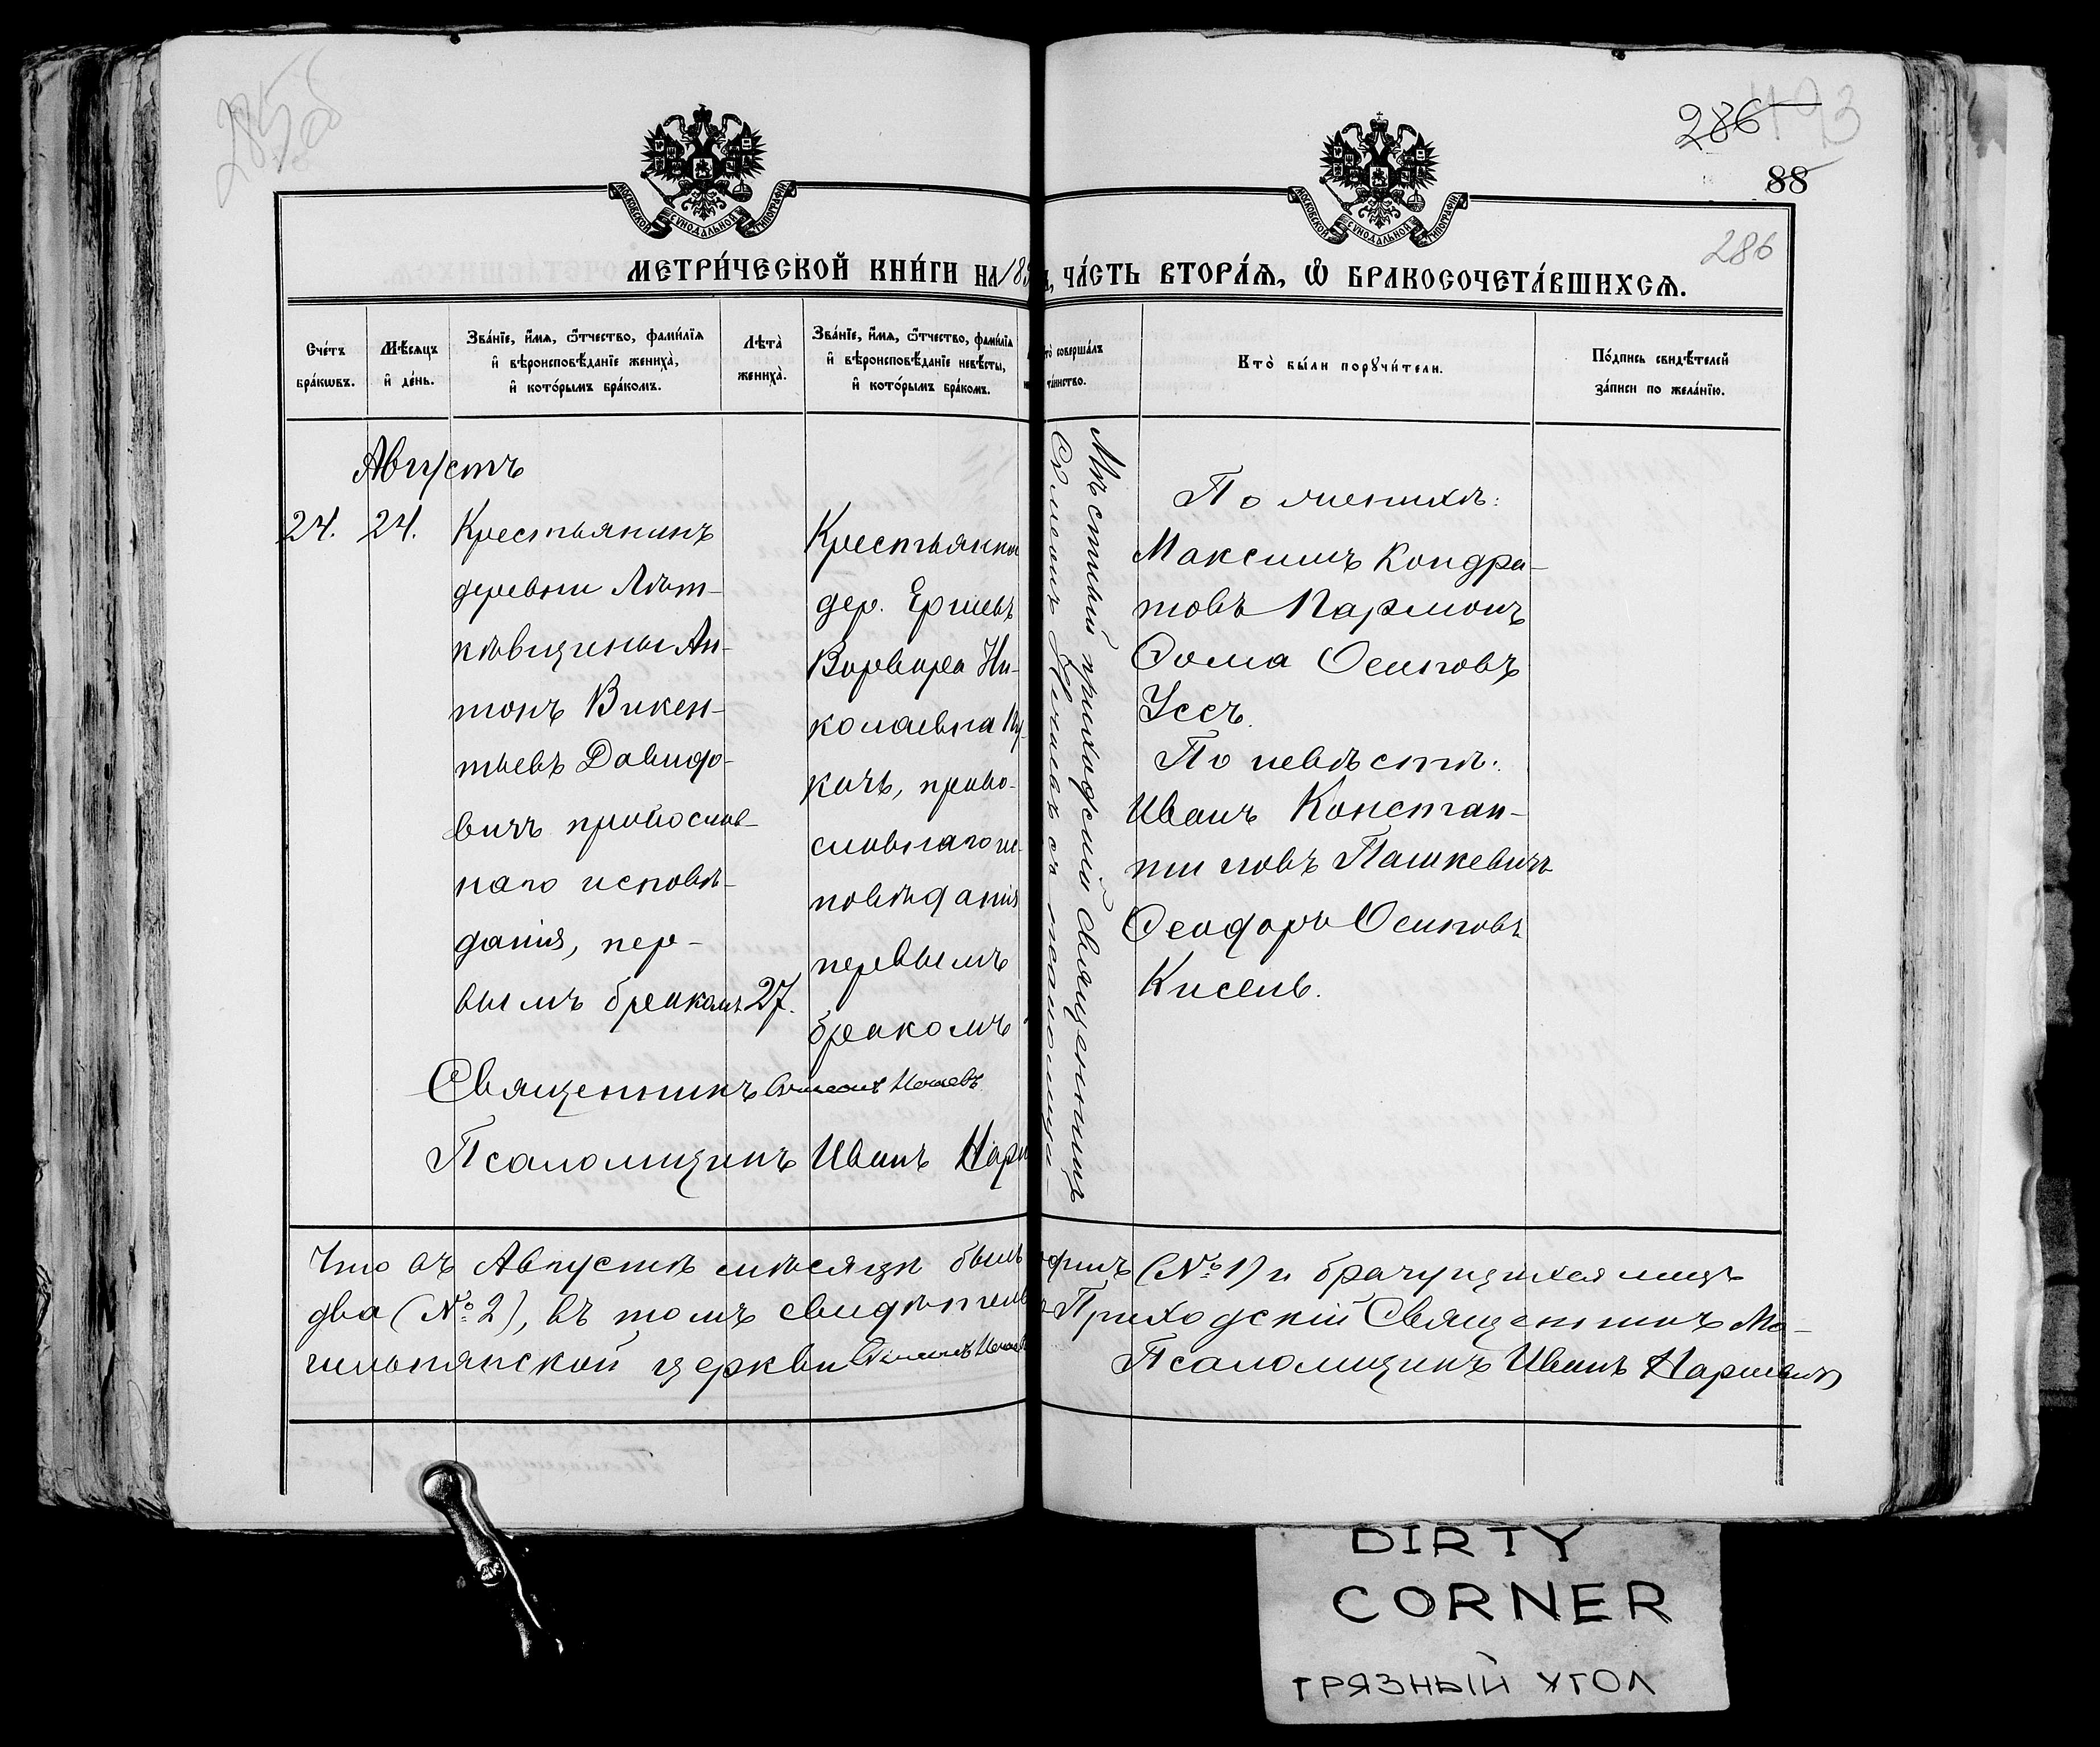 285 об
286
493
88
286
МОСКОВСКОЙ СѴНОДАЛЬНОЙ ТИПОГРАФІИ
МОСКОВСКОЙ СѴНОДАЛЬНОЙ ТИПОГРАФІИ
МЕТРИ́ЧЕСКОЙ КНИ́ГИ НА 18
ЧА́СТЬ ВТОРА́Ѧ, Ѡ҆ БРАКОСОЧЕТА́ВШИХСѦ.
Сче́тъ
бра́кѡвъ.
Мѣ́сѧцъ
и҆ де́нь.
Зва́нїе, и҆́мѧ, ѻ҆́тчество, фами́лїѧ
и҆ вѣроисповѣ́данїе жениха̀,
и҆ кото́рымъ бра́комъ.
Лѣта̀
жениха̀.
Зва́нїе, и҆́мѧ, ѻ҆́тчество, фами́лїѧ
и҆ вѣроисповѣ́данїе невѣ́сты,
и҆ кото́рымъ бра́комъ.
то̀ соверша́лъ
та́инство.
Кто̀ бы́ли порꙋчи́тели.
По́дпись свидѣ́телей
за́писи по жела́нїю.
Августъ
24. 24.
Крестьянинъ
деревни Лѣт-
кѣвщины Ан-
тонъ Викен-
тьевъ Давидо-
вичъ православ-
наго исповѣ-
данія, пер-
вымъ бракомъ. 27.
Крестьянка
дер. Ершевъ
Варвара Ни-
колаевна Ку-
качъ, право-
славнаго ис-
повѣданія
первымъ
бракомъ
Священникъ Симеонъ
Псаломщикъ Иванъ
Мѣстный приходскій священникъ
Симеонъ съ псаломщи-
По женихѣ:
Максимъ Кондра-
товъ Пармонъ
Ѳома Осиповъ
Уссъ.
По невѣстѣ:
Иванъ Констан-
тиновъ Пашкевичъ
Ѳеодоръ Осиповъ
Кисель.
Что въ Августѣ мѣсяцѣ былъ одинъ (№ 1) и брачущихся лицъ
два (№ 2), въ томъ свидѣтельс Приходскій Священникъ Мо-
гильнянской церкви Симеонъ Псаломщикъ Иванъ
DIRTY
CORNER
ГРЯЗНЫЙ УГОЛ